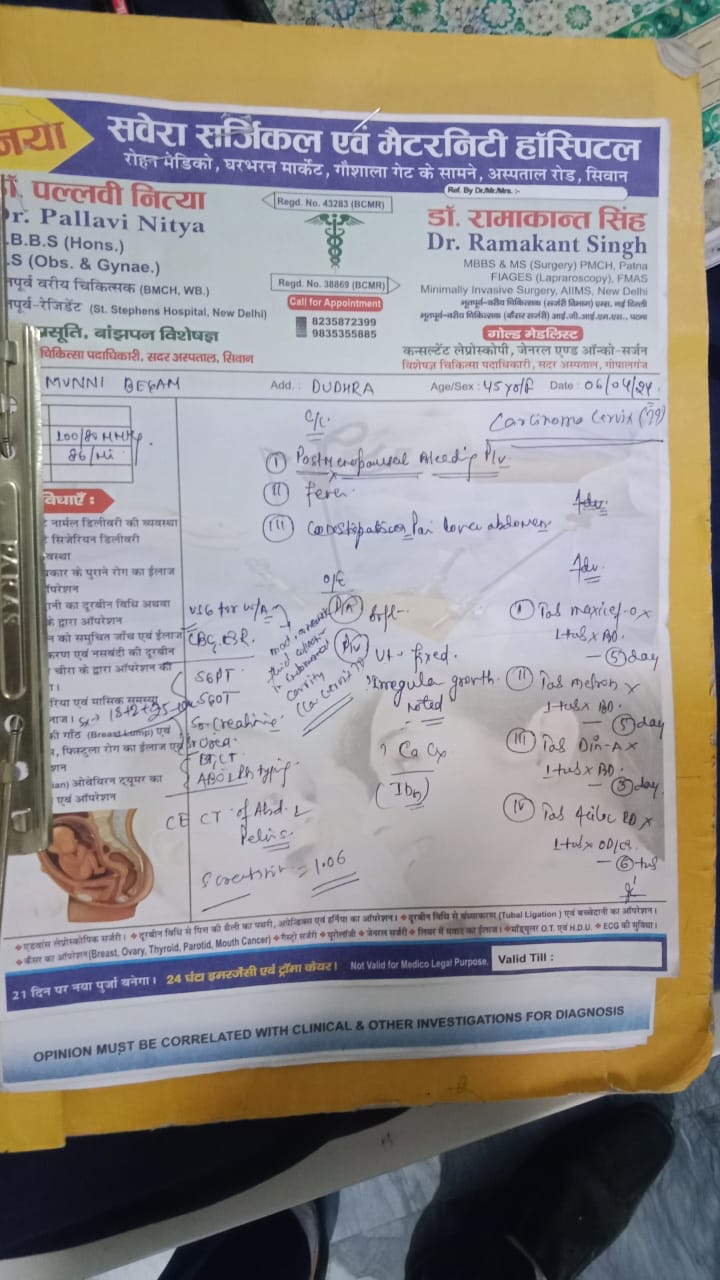 नया
सवेरा सर्जिकल एवं मैटरनिटी हॉस्पिटल
रोहन मेडिको, घरभरन मार्केट, गौशाला गेट के सामने, अस्पताल रोड, सिवान
Ref. By Dr./Mr./Mrs. :-
पल्लवी नित्या
Dr. Pallavi Nitya
.B.B.S (Hons.)
.S (Obs. & Gynae.)
पूर्व वरीय चिकित्सक (BMCH, WB.)
पूर्व-रेजिडेंट (St. Stephens Hospital, New Delhi)
प्रसूति, बांझपन विशेषज्ञ
चिकित्सा पदाधिकारी, सदर अस्पताल, सिवान
Regd. No. 43283 (BCMR)
Regd. No. 38869 (BCMR)
Call for Appointment
8235872399
9835355885
डॉ. रामाकान्त सिंह
Dr. Ramakant Singh
MBBS & MS (Surgery) PMCH, Patna
FIAGES (Lapraroscopy), FMAS
Minimally Invasive Surgery, AIIMS, New Delhi
भूतपूर्व-वरीय चिकित्सक (सर्जरी विभाग) एम्स, नई दिल्ली
भूतपूर्व-वरीय चिकित्सक (कैंसर सर्जरी) आई.जी.आई.एम.एस., पटना
गोल्ड मेडलिस्ट
कन्सल्टेंट लेप्रोस्कोपी, जेनरल एण्ड ऑन्को-सर्जन
विशेषज्ञ चिकित्सा पदाधिकारी, सदर अस्पताल, गोपालगंज
MUNNI BEGAM Add. : DUDHRA Age/Sex : 45 yo/f Date : 06/04/24
100/80 MMHg
86/Mi
C/C
Carcinoma Cervix
I Postmenopausal Bleeding P/v
II Fever
III Constipation Pain lower abdomen
Adv.
O/E
Adv.
USG for W/A
CBC, ESR.
SGPT
SGOT
Sr. Creatinine
Sr Urea
BT, CT
ABO & Rh typing
CE CT of Abd. &
Pelvis
S creatinin = 1.06
P/A Soft
P/v Ut. fixed.
Irregular growth
Noted
? Ca Cx
mod. amount
fluid collection
in endometrial
cavity
(Ca Cervix ?)
I Tab maxicef-O x
1 tab x BD
5 day
II Tab metron x
1 tab x BD
5 day
III Tab Din-A x
1 tab x BD
5 day
IV
1 tab x OD
6 tab
विधाएँ :
नार्मल डिलीवरी की व्यवस्था
सिजेरियन डिलीवरी
वस्था
प्रकार के पुराने रोग का ईलाज
ऑपरेशन
नी का दूरबीन विधि अथवा
के द्वारा ऑपरेशन
न को समुचित जाँच एवं ईलाज
करण एवं नसबंटी की दूरबीन
चीरा के द्वारा ऑपरेशन की
रिया एवं मासिक समस्या
नाज।
की गाँठ (Breast Lump) एवं
, फिस्टुला रोग का ईलाज एवं
शन
an) ओवेरियन ट्यूमर का
एवं ऑपरेशन
❖एडवांस लेप्रोस्कोपिक सर्जरी। ❖दूरबीन विधि से पित्त की थैली का पथरी, अपेन्डिक्स एवं हर्निया का ऑपरेशन। ❖दूरबीन विधि से बंध्याकरण (Tubal Ligation) एवं बच्चेदानी का ऑपरेशन।
❖कैंसर का ऑपरेशन(Breast, Ovary, Thyroid, Parotid, Mouth Cancer) ❖गैस्ट्रो सर्जरी ❖यूरोलॉजी ❖जेनरल सर्जरी ❖लिवर में मवाद का ईलाज। ❖मॉड्यूलर O.T. एवं H.D.U. ❖ECG की सुविधा।
21 दिन पर नया पुर्जा बनेगा। 24 घंटा इमरजेंसी एवं ट्रॉमा केयर। Not Valid for Medico Legal Purpose. Valid Till :
OPINION MUST BE CORRELATED WITH CLINICAL & OTHER INVESTIGATIONS FOR DIAGNOSIS